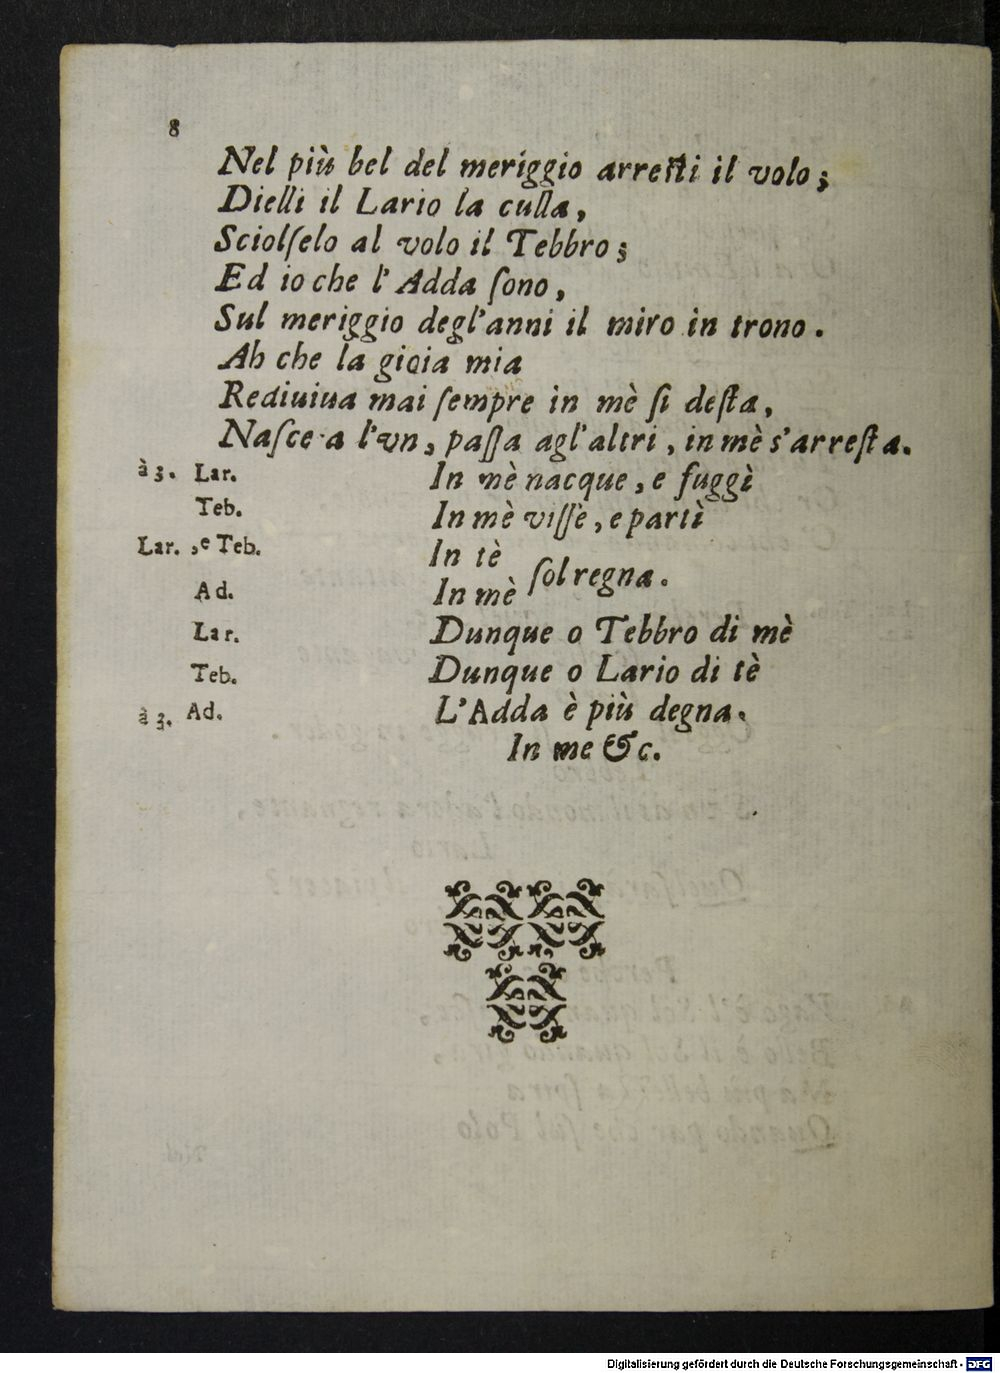 8
Nel più bel del meriggio arresti il volo;
Dielli il Lario la culla,
Sciolſelo al volo il Tebbro;
Ed io che l'Adda ſono,
Sul meriggio degl'anni il miro in trono.
Ah che la gioia mia
Rediuiua mai ſempre in mè ſi deſta,
Naſce a l'vn, paſſa agl'altri, in mè s'arreſta.
à 3. Lar. In mè nacque, e fuggì
Teb. In mè viſſe, e partì
Lar. ,e Teb. In tè
ſol regna.
Ad. In mè
Lar. Dunque o Tebbro di mè
Teb. Dunque o Lario di tè
à 3. Ad. L'Adda è più degna.
In me &c.
Digitalisierung gefördert durch die Deutsche Forschungsgemeinschaft - DFG